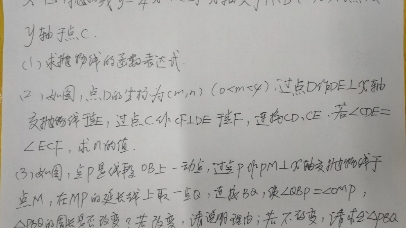 y轴于点C.
(1)求抛物线的函数表达式
(2)如图,点D的坐标为(m,n)(0<m<4),过点D作DE⊥x轴
交抛物线于E,过点C作CF⊥DE于F,连接CD、CE.若∠CDE=
∠ECF,求n的值.
(3)如图,点P是线段OB上一动点,过点P作PM⊥x轴交抛物线于
点M,在MP的延长线上取一点Q,连接BQ,使∠QBP=∠OMP,
△PBQ的周长是否改变?若改变,请说明理由;若不改变,请求出△PBQ